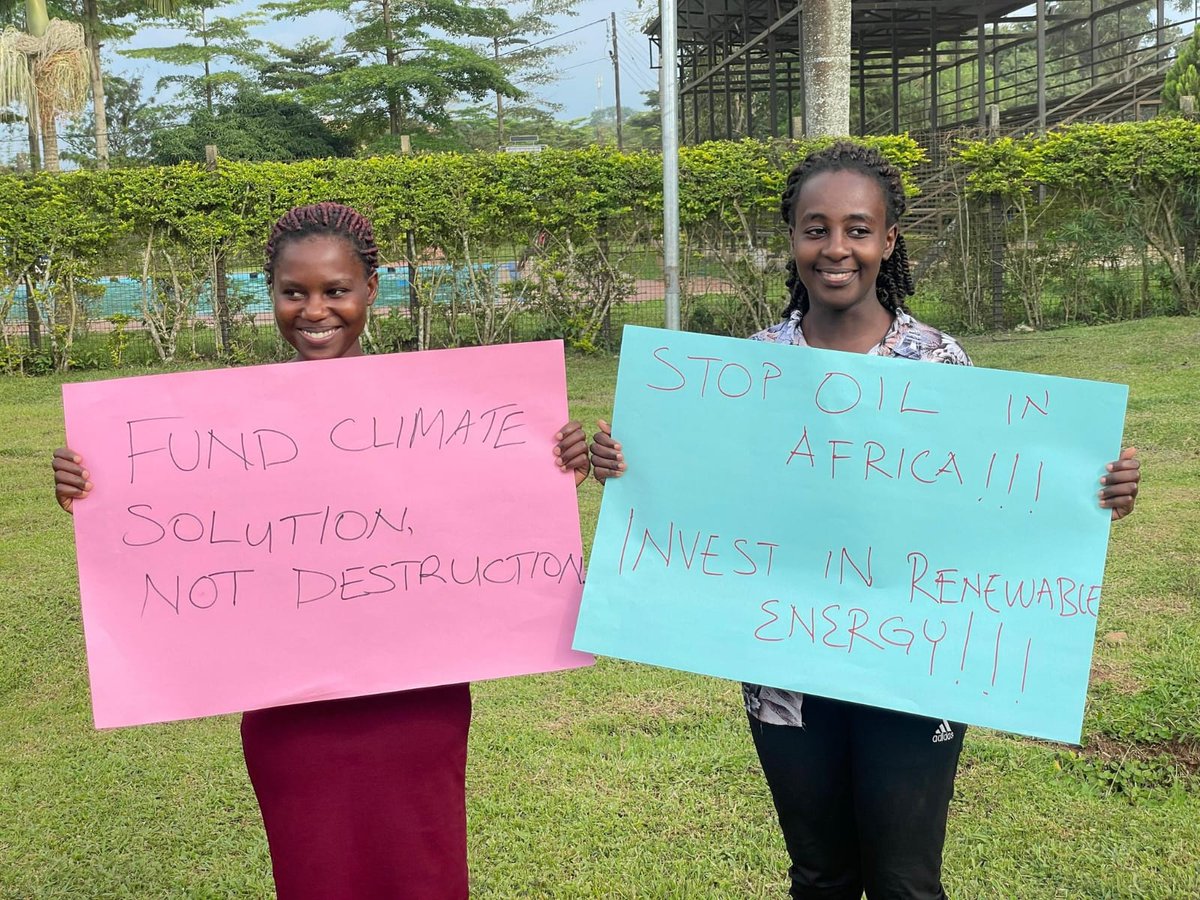 FUND CLIMATE
SOLUTION,
NOT DESTRUCTION
STOP OIL IN
AFRICA!!!
INVEST IN RENEWABLE
ENERGY!!!
adidas